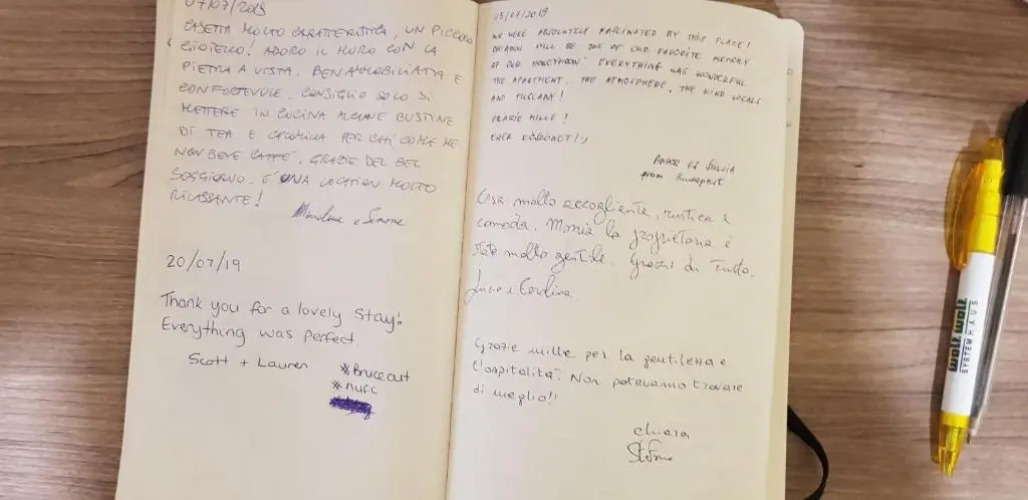 07/07/2019
CASETTA MOLTO CARATTERISTICA, UN PICCOLO
GIOIELLO! ADORO IL MURO CON LA
PIETRA A VISTA. BEN AMMOBILIATA E
CONFORTEVOLE. CONSIGLIO SOLO DI
METTERE IN CUCINA ALCUNE BUSTINE
DI TEA E CAMOMILLA PER CHI COME ME
NON BEVE CAFFÈ. GRAZIE DEL BEL
SOGGIORNO. E' UNA LOCATION MOLTO
RILASSANTE!
e Simone
20/07/19
Thank you for a lovely stay!
Everything was perfect
Scott + Lauren
*Bruceout
*nufc
05/07/2019
WE WERE ABSOLUTELY FASCINATED BY THIS PLACE!
CHIANNI WILL BE ONE OF OUR FAVORITE MEMORY
OF OUR HONEYMOON! EVERYTHING WAS WONDERFUL
THE APARTMENT, THE ATMOSPHERE, THE KIND LOCALS
AND TUSCANY!
GRAZIE MILLE!
from Budapest
Casa molto accogliente, rustica e
comoda. Monia la proprietaria è
stata molto gentile. Grazie di tutto.
Grazie mille per la gentilezza e
l'ospitalità. Non potevamo trovare
di meglio!!
Chiara
Stefano
walk walk
SYSTEMHAUS